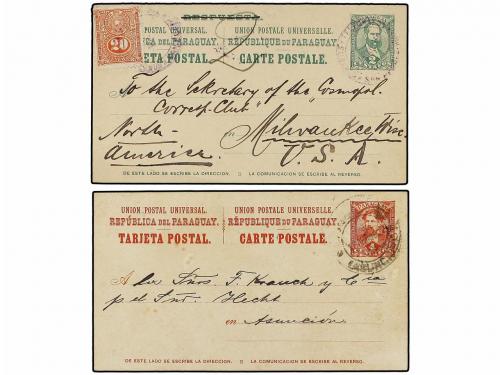 RESPUESTA
UNION POSTAL UNIVERSAL. UNION POSTALE UNIVERSELLE.
REPÚBLICA DEL PARAGUAY. RÉPUBLIQUE DU PARAGUAY.
TARJETA POSTAL. CARTE POSTALE.
20
To the Secretary of the "Cosmopol.
Corresp.-Club"
North- en Milwaukee, Wisc.
America. U.S.A.
DE ESTE LADO SE ESCRIBE LA DIRECCION. LA COMUNICACION SE ESCRIBE AL REVERSO.
UNION POSTAL UNIVERSAL. UNION POSTALE UNIVERSELLE.
REPÚBLICA DEL PARAGUAY. RÉPUBLIQUE DU PARAGUAY.
TARJETA POSTAL. CARTE POSTALE.
A los Sñrs. F. Krauch y Cia
p el Sñr. Hecht
en Asunción
DE ESTE LADO SE ESCRIBE LA DIRECCION. LA COMUNICACION SE ESCRIBE AL REVERSO.